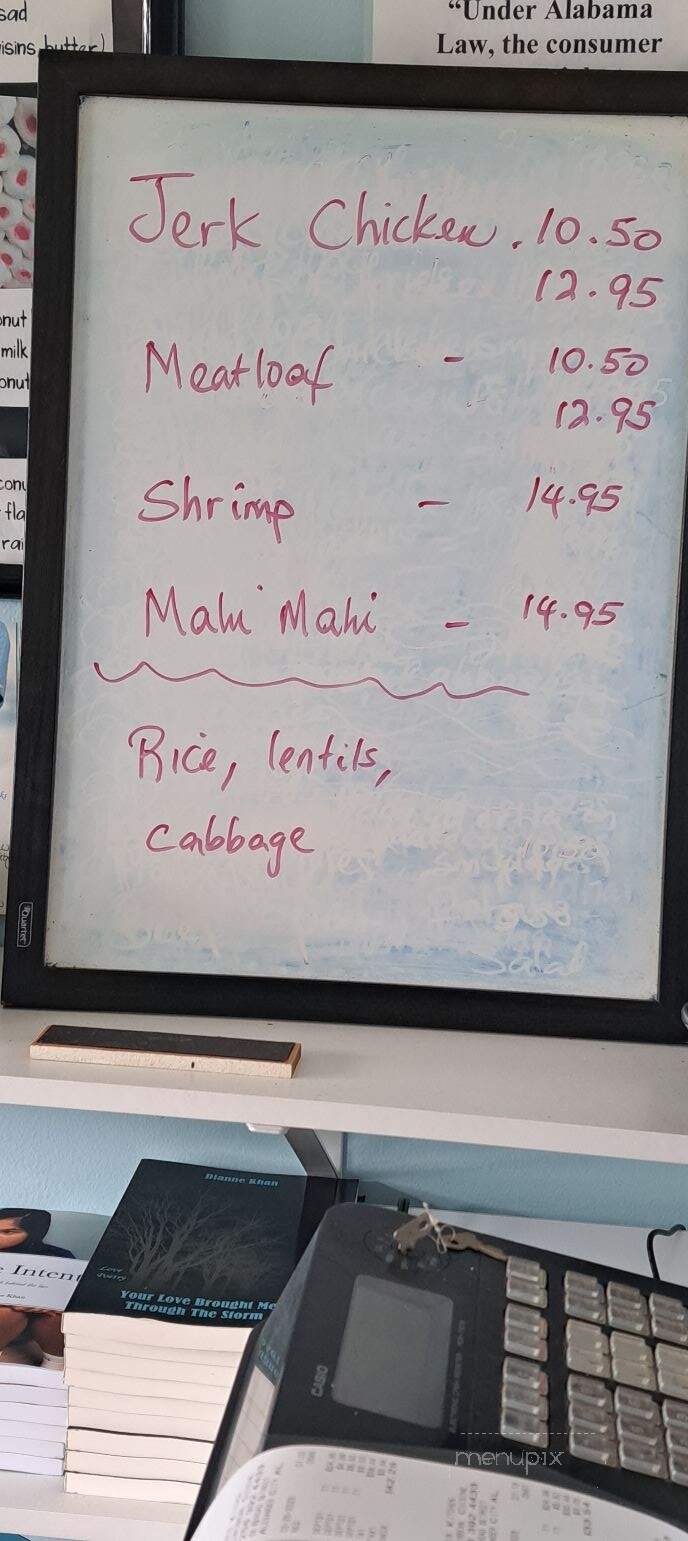 sad
isins butter)
"Under Alabama
Law, the consumer
onut
milk
onut
fla
rai
Jerk Chicken . 10.50
12.95
Meatloaf - 10.50
12.95
Shrimp - 14.95
Mahi Mahi - 14.95
Rice, lentils,
cabbage
Quartet
Dianne Khan
Love
Poetry
Your Love Brought Me
Through The Storm
Inten
Khan
CASIO
menupix